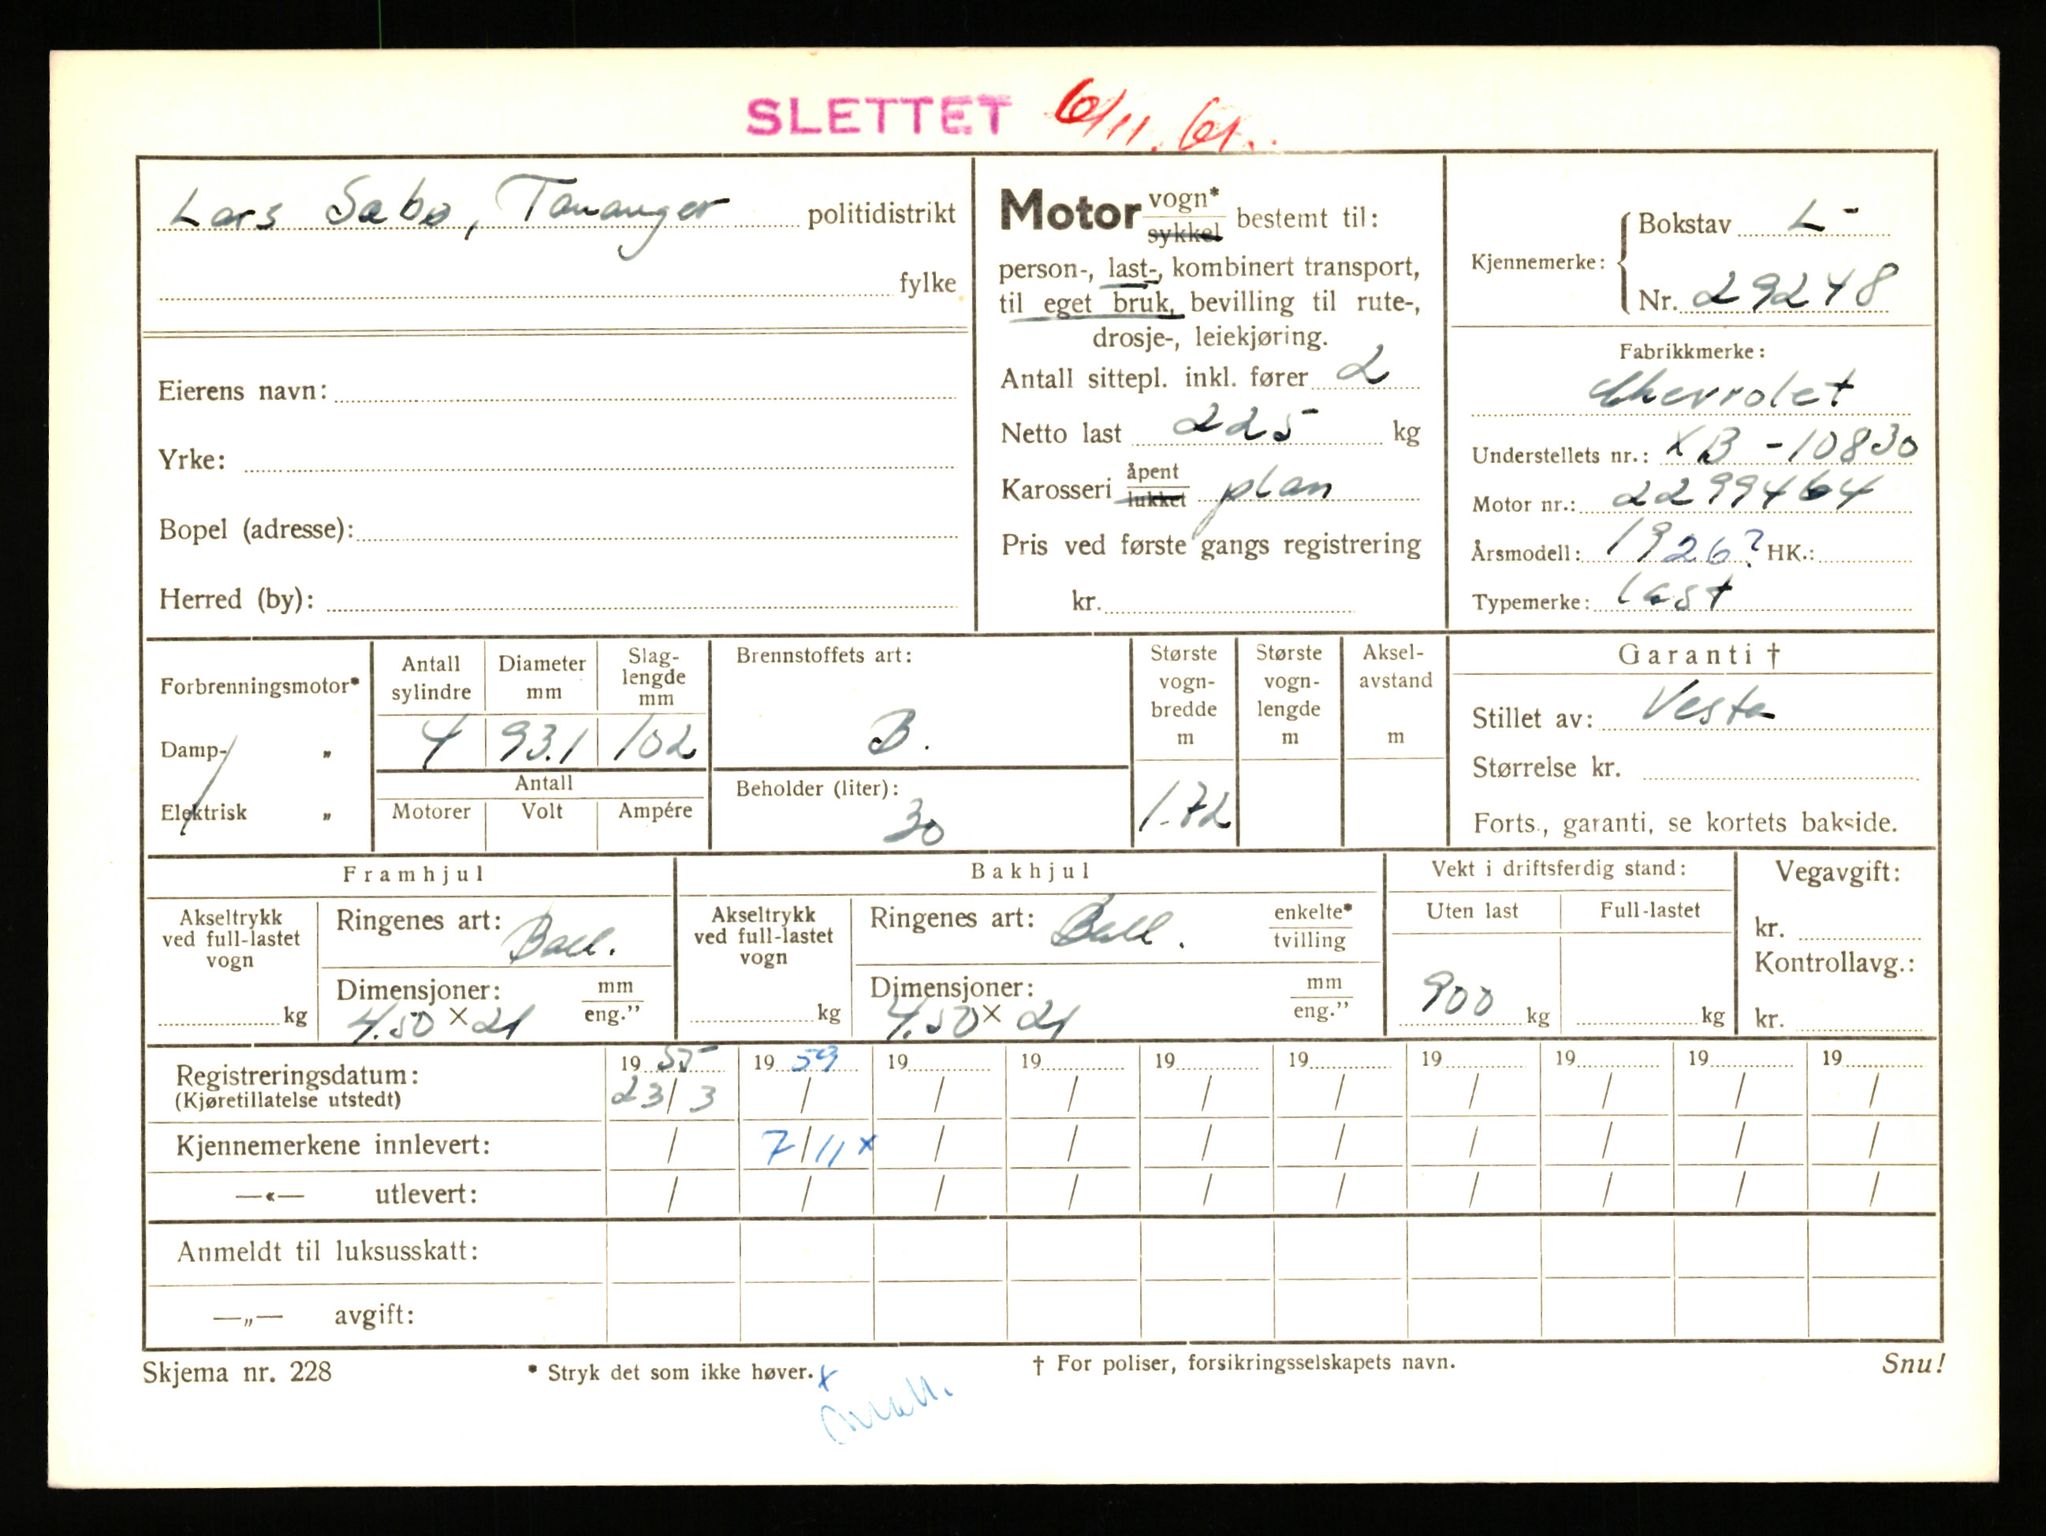 SLETTET 6/11.61.
Lars Sabø, Tananger politidistrikt
fylke
Eierens navn:
Yrke:
Bopel (adresse):
Herred (by):
Motor vogn* sykkel bestemt til:
person-, last-, kombinert transport,
til eget bruk, bevilling til rute-,
drosje-, leiekjøring.
Antall sittepl. inkl. fører 2
Netto last 225 kg
Karosseri åpent lukket plan
Pris ved første gangs registrering
kr.
Kjennemerke: Bokstav L-
Nr. 29248
Fabrikkmerke:
Chevrolet
Understellets nr.: XB-10830
Motor nr.: 2299464
Årsmodell: 1926? HK.:
Typemerke: last
Forbrenningsmotor*
Damp- „
Elektrisk „
Antall sylindre 4
Diameter mm 93.1
Slag-lengde mm 102
Antall
Motorer Volt Ampére
Brennstoffets art:
B.
Beholder (liter):
30
Største vogn-bredde m 1.72
Største vogn-lengde m
Aksel-avstand m
Garanti †
Stillet av: Vesta
Størrelse kr.
Forts., garanti, se kortets bakside.
Framhjul
Akseltrykk ved full-lastet vogn kg
Ringenes art: Ball.
Dimensjoner: mm eng.”
4.50 x 21
Bakhjul
Akseltrykk ved full-lastet vogn kg
Ringenes art: Ball. enkelte* tvilling
Dimensjoner: mm eng.”
4.50 x 21
Vekt i driftsferdig stand:
Uten last Full-lastet
900 kg kg
Vegavgift:
kr.
Kontrollavg.:
kr.
Registreringsdatum: 19 55 19 59 19 19 19 19 19 19 19 19
(Kjøretillatelse utstedt) 23/3 / / / / / / / / /
Kjennemerkene innlevert: / 7/11 x / / / / / / / /
—«— utlevert: / / / / / / / / / /
Anmeldt til luksusskatt:
—„— avgift:
Skjema nr. 228 * Stryk det som ikke høver. x † For poliser, forsikringsselskapets navn. Snu!